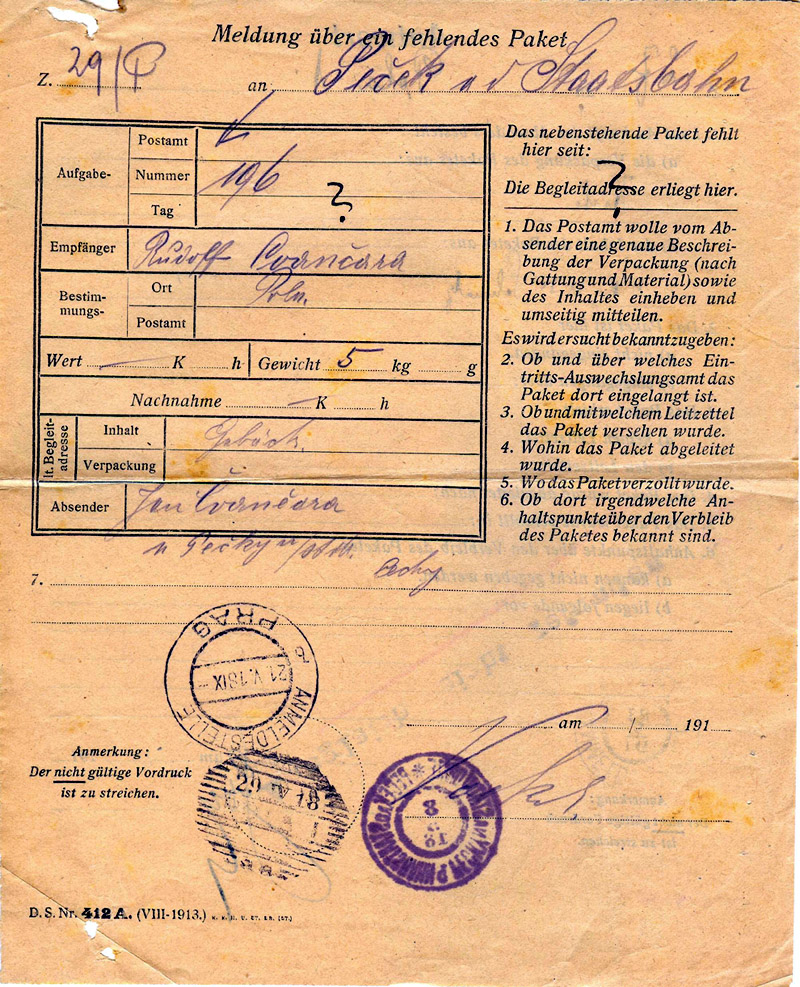 Meldung über ein fehlendes Paket
Z. 29/P an Peček a d Staatsbahn
Aufgabe-
Postamt
Nummer 196
Tag ?
Empfänger Rudolf Cvančara
Bestim-
mungs-
Ort Pola.
Postamt
Wert — K h Gewicht 5 kg g
Nachnahme — K h
lt. Begleit-
adresse
Inhalt Gebäck.
Verpackung
Absender Jan Cvančara
Das nebenstehende Paket fehlt
hier seit:
?
Die Begleitadresse erliegt hier.
1. Das Postamt wolle vom Ab-
sender eine genaue Beschrei-
bung der Verpackung (nach
Gattung und Material) sowie
des Inhaltes einheben und
umseitig mitteilen.
Es wird ersucht bekanntzugeben:
2. Ob und über welches Ein-
tritts-Auswechslungsamt das
Paket dort eingelangt ist.
3. Ob und mit welchem Leitzettel
das Paket versehen wurde.
4. Wohin das Paket abgeleitet
wurde.
5. Wo das Paket verzollt wurde.
6. Ob dort irgendwelche An-
haltspunkte über den Verbleib
des Paketes bekannt sind.
7.
PRAG
21.V.18 IX
ANMELDESTELLE
am 191
Anmerkung:
Der nicht gültige Vordruck
ist zu streichen.
D. S. Nr. 412 A. (VIII-1913.)